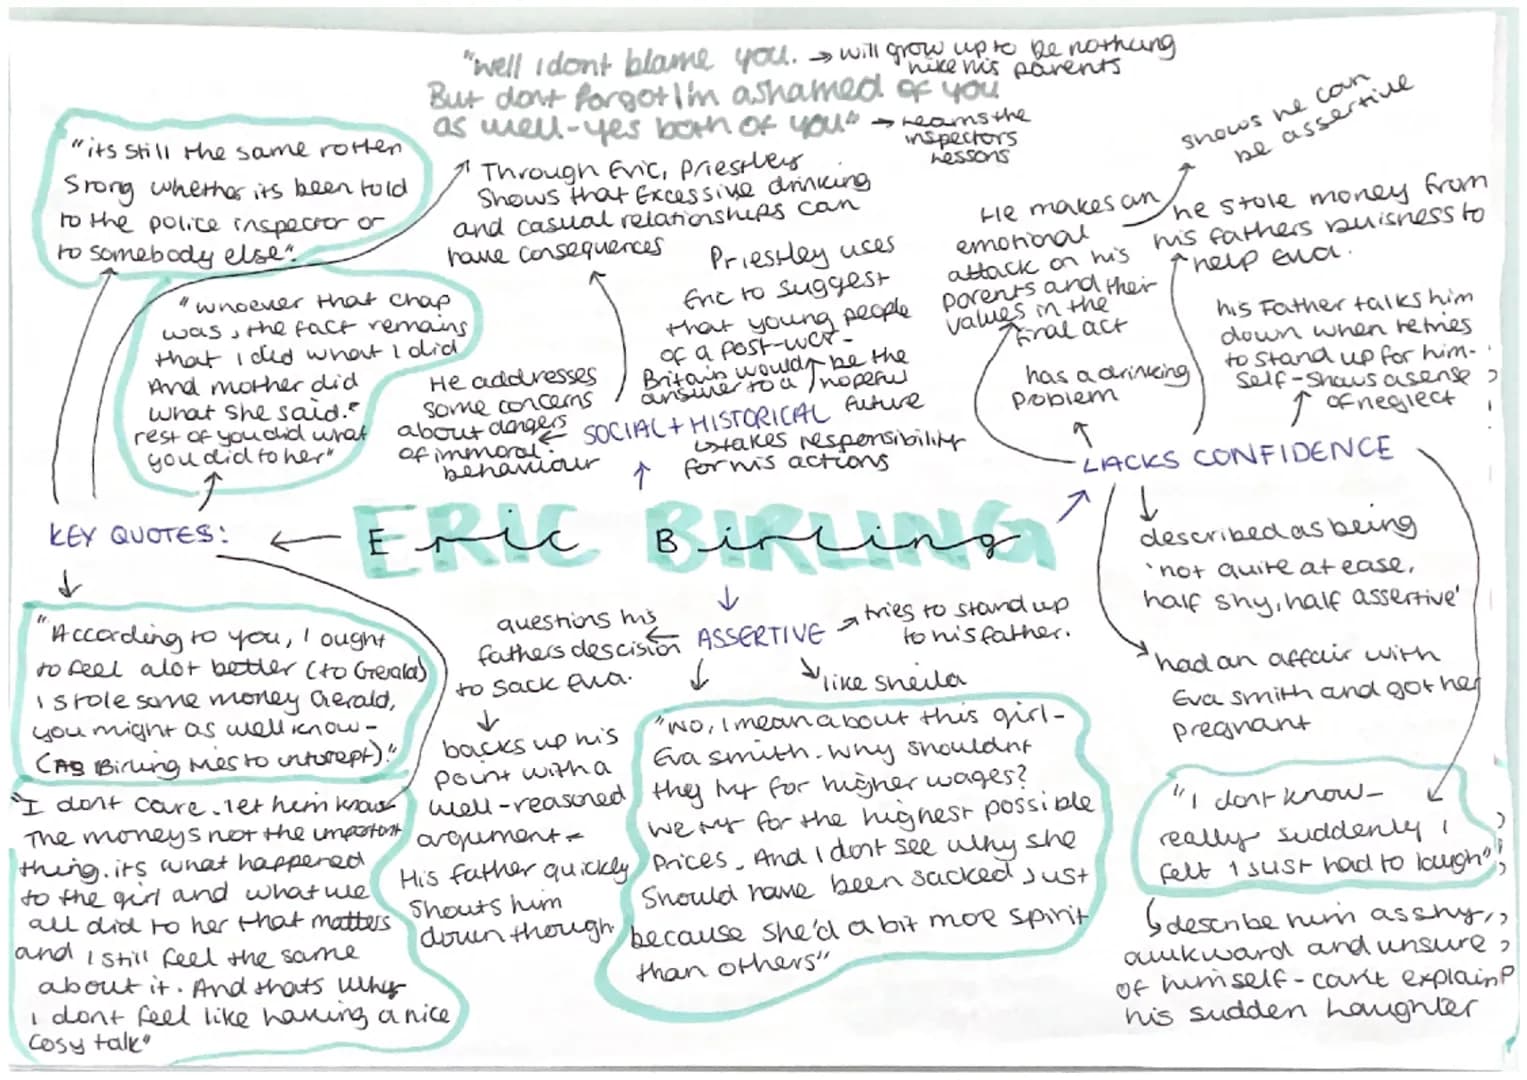 "well i dont blame you. → will grow up to be nothing
like his parents
But dont forgot I'm ashamed of you
as well-yes both of you" → learns the
inspectors
lessons
"its still the same rotten
Story whether its been told
to the police inspector or
to somebody else".
"whoever that chap
was, the fact remains
that I did what I did
And mother did
what she said.
rest of you did what
you did to her"
Through Eric, Priestley
Shows that Excessive drinking
and casual relationships can
have consequences
Priestley uses
Eric to suggest
that young people
of a post-war-
Britain would be the
answer to a hopeful
future
He addresses
some concerns
about dangers
of immoral
behaviour
SOCIAL + HISTORICAL
↳takes responsibility
for his actions
shows he can
be assertive
He makes an
emotional
attack on his
parents and their
values in the
final act
he stole money from
his fathers buisness to
help Eva.
his Father talks him
down when he tries
to stand up for him-
self-shows a sense
of neglect
has a drinking
problem
LACKS CONFIDENCE
described as being
'not quite at ease,
half shy, half assertive'
had an affair with
Eva smith and got her
pregnant
"I dont know-
really suddenly I
felt I just had to laugh"
describe him as shy,
awkward and unsure
of himself-can't explain
his sudden laughter
ERIC BIRLING
Eric Birling
KEY QUOTES:
"According to you, I ought
to feel alot better (to Gerald)
I stole some money Gerald,
you might as well know-
(As Birling tries to interept)."
"I dont care. let him know
The moneys not the important
thing. its what happened
to the girl and what we
all did to her that matters
and I still feel the same
about it. And thats why
I dont feel like having a nice
cosy talk"
ASSERTIVE
questions his
fathers descision
to sack Eva.
backs up his
point with a
well-reasoned
argument-
His father quickly
Shouts him
down though.
tries to stand up
to his father.
like sheila
"No, I mean about this girl-
Eva smith. Why shouldnt
they try for higher wages?
We try for the highest possible
Prices. And I dont see why she
Should have been sacked Just
because she'd a bit more spirit
than others"